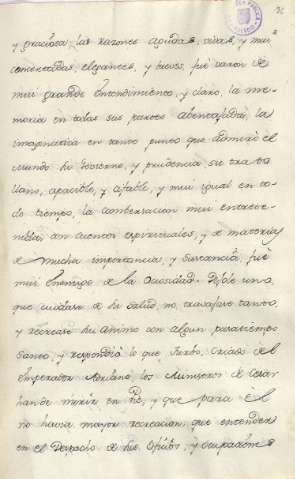 y graciosa, las razones agudas, vivas, y mui
comedidas, elegantes, y breves, fue varon de
mui grande entendimiento, y claro, la me-
moria en todas sus partes abentajada, la
imaginativa en tanto punto que admiró el
mundo su govierno, y prudencia su trato
llano, apacible, y afable, y mui igual en to-
do tiempo, la combersacion mui entrete-
nida con cuentos espirituales, y de materias
de mucha importancia, y sustancia, fue
mui enemigo de la ociosidad. Pidióle uno
que cuidase de su salud, no travajase tanto,
y recrease su animo con algun pasatiempo
santo, y respondió lo que criado del
Emperador Adriano los Ministros de Cesar
han de morir en pie, y que para él
no havia mayor recreacion que entender
en el Despacho de su oficio, y ocupacion